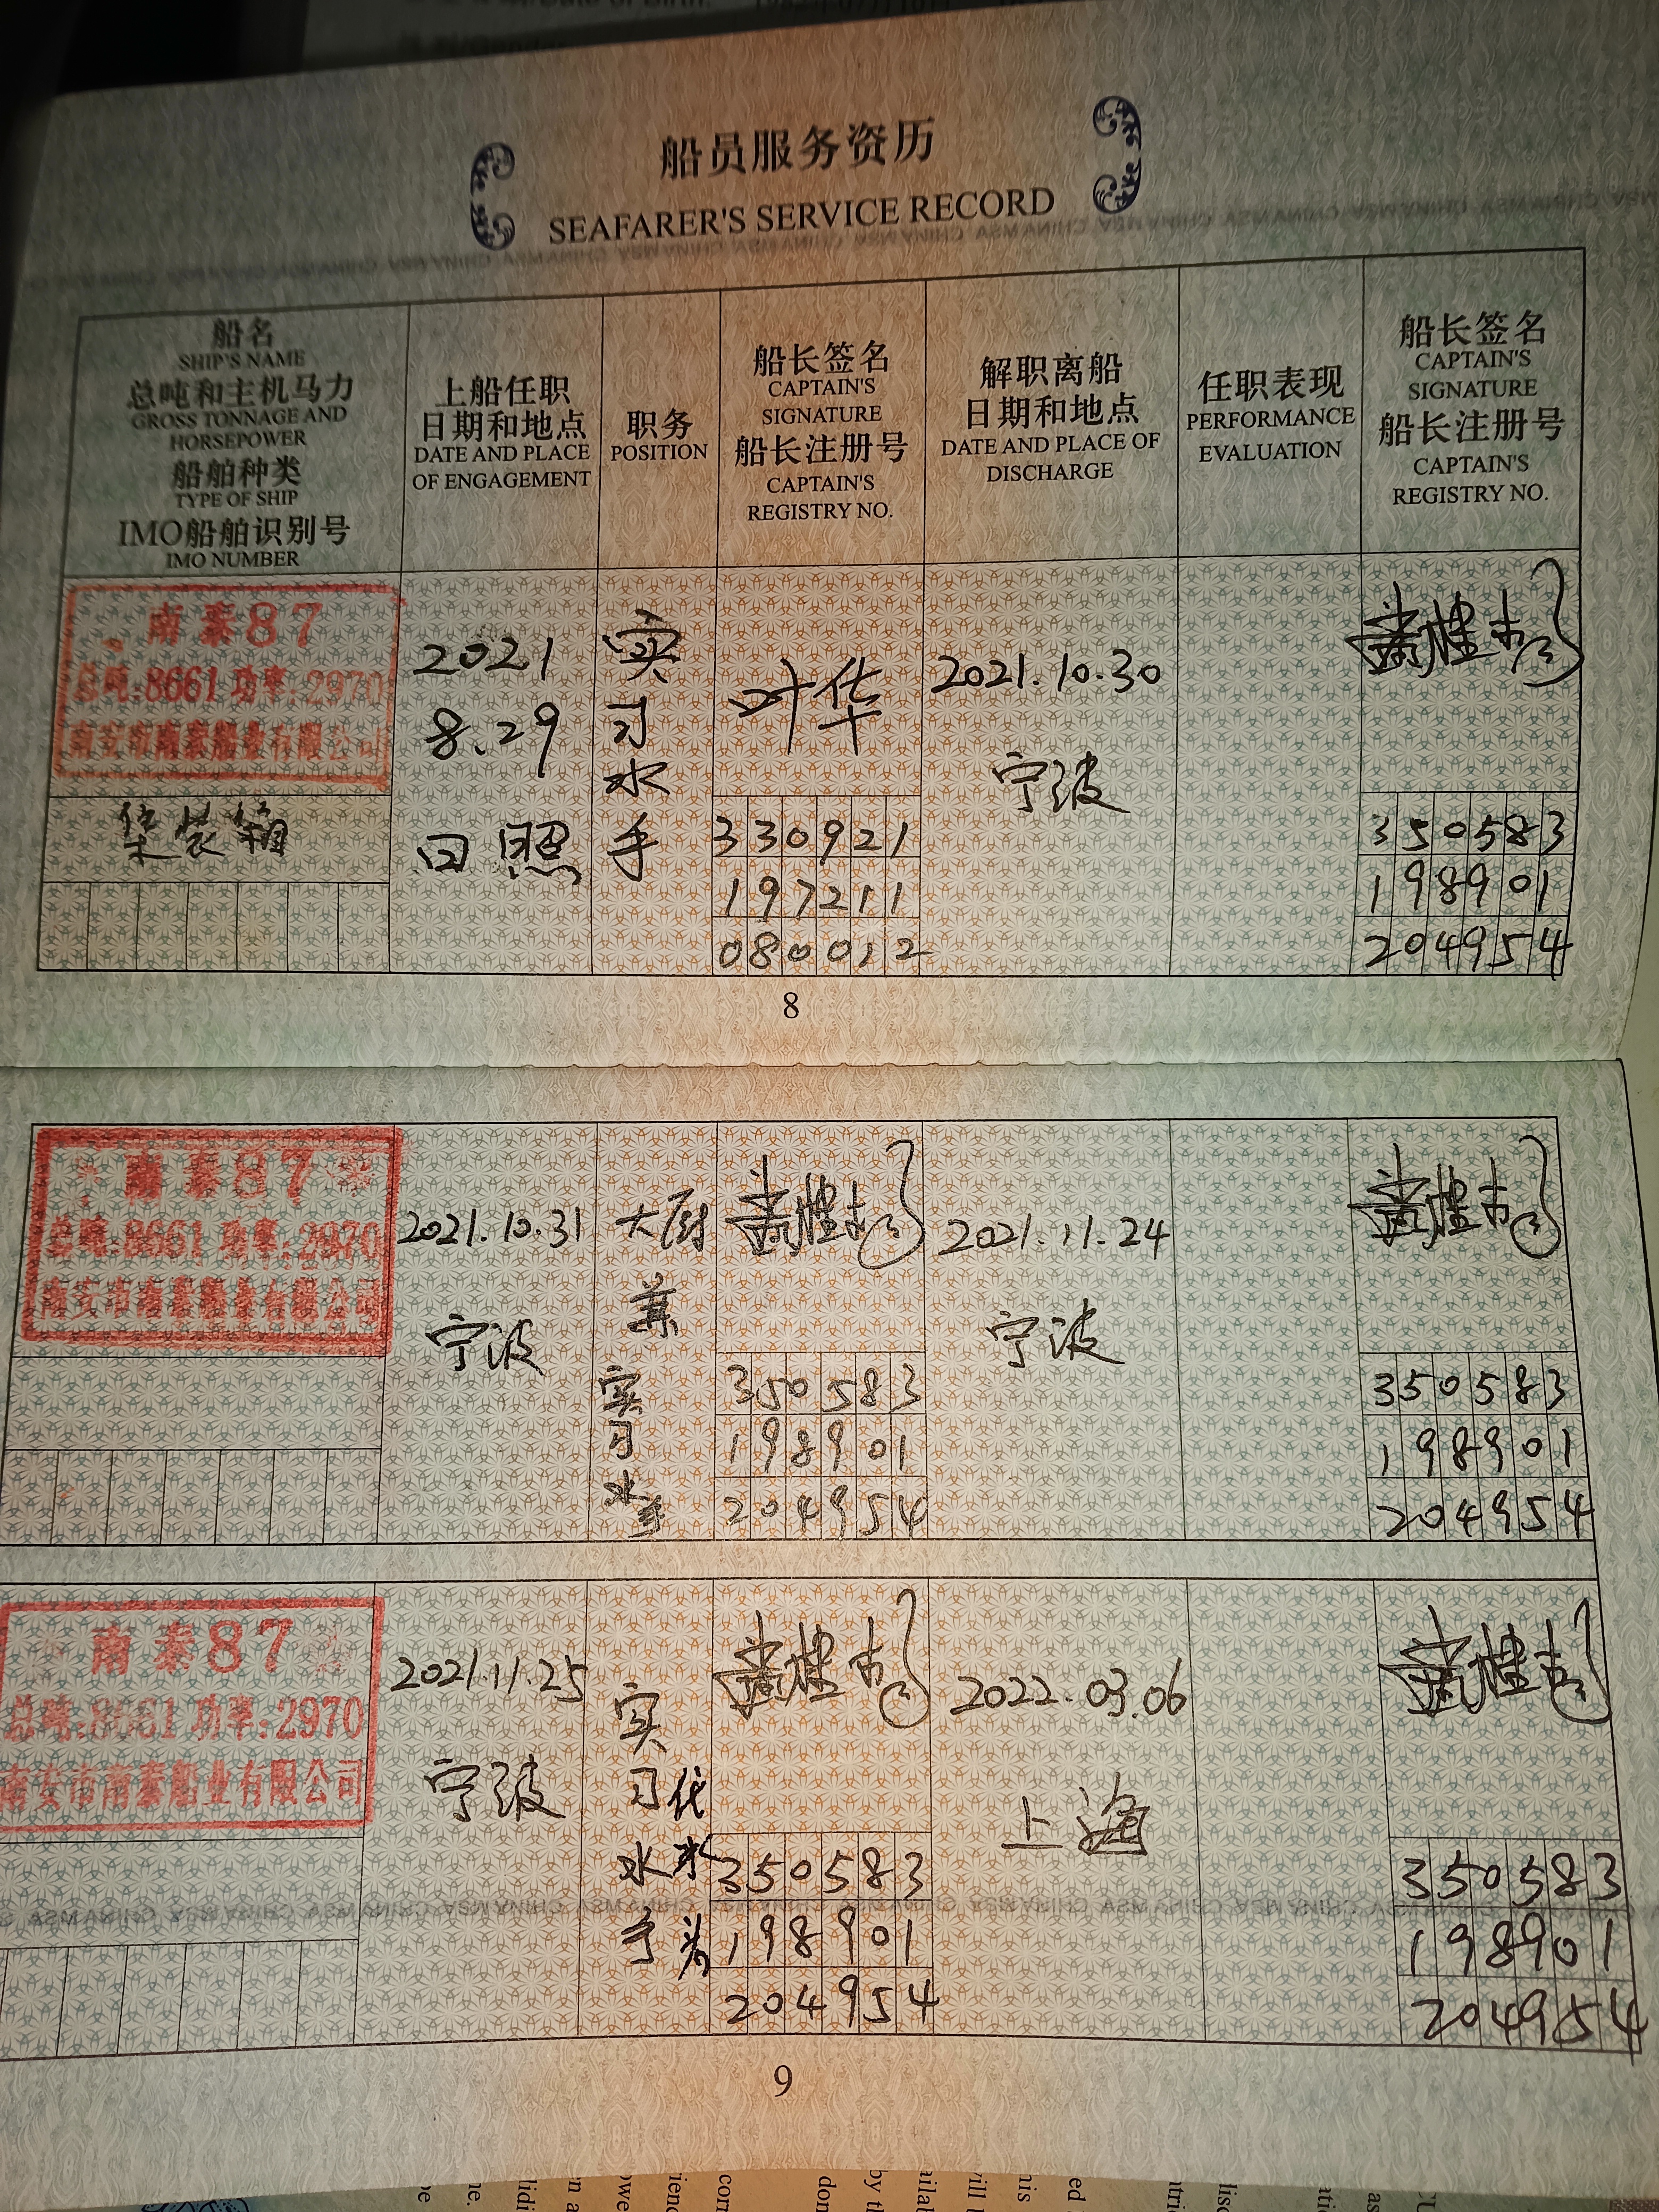 船员服务资历
SEAFARER'S SERVICE RECORD
船名
SHIP'S NAME
总吨和主机马力
GROSS TONNAGE AND
HORSEPOWER
船舶种类
TYPE OF SHIP
IMO船舶识别号
IMO NUMBER
上船任职
日期和地点
DATE AND PLACE
OF ENGAGEMENT
职务
POSITION
船长签名
CAPTAIN'S
SIGNATURE
船长注册号
CAPTAIN'S
REGISTRY NO.
解职离船
日期和地点
DATE AND PLACE OF
DISCHARGE
任职表现
PERFORMANCE
EVALUATION
船长签名
CAPTAIN'S
SIGNATURE
船长注册号
CAPTAIN'S
REGISTRY NO.
南泰87
总吨:8661 功率:2970
南安市南泰船业有限公司
集装箱
2021
8.29
日照
实
习
水
手
叶华
330921
197211
080012
2021.10.30
宁波
350583
198901
204954
8
南泰87
总吨:8661 功率:2970
南安市南泰船业有限公司
2021.10.31
宁波
大厨
兼
实
习
水
手
350583
198901
204954
2021.11.24
宁波
350583
198901
204954
南泰87
总吨:8661 功率:2970
南安市南泰船业有限公司
2021.11.25
宁波
实
习
水
手
350583
198901
204954
2022.03.06
上海
350583
198901
204954
9